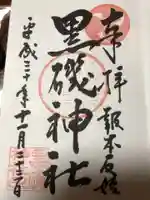 奉拝 報本反始
黒磯神社
平成三十年十一月二十三日